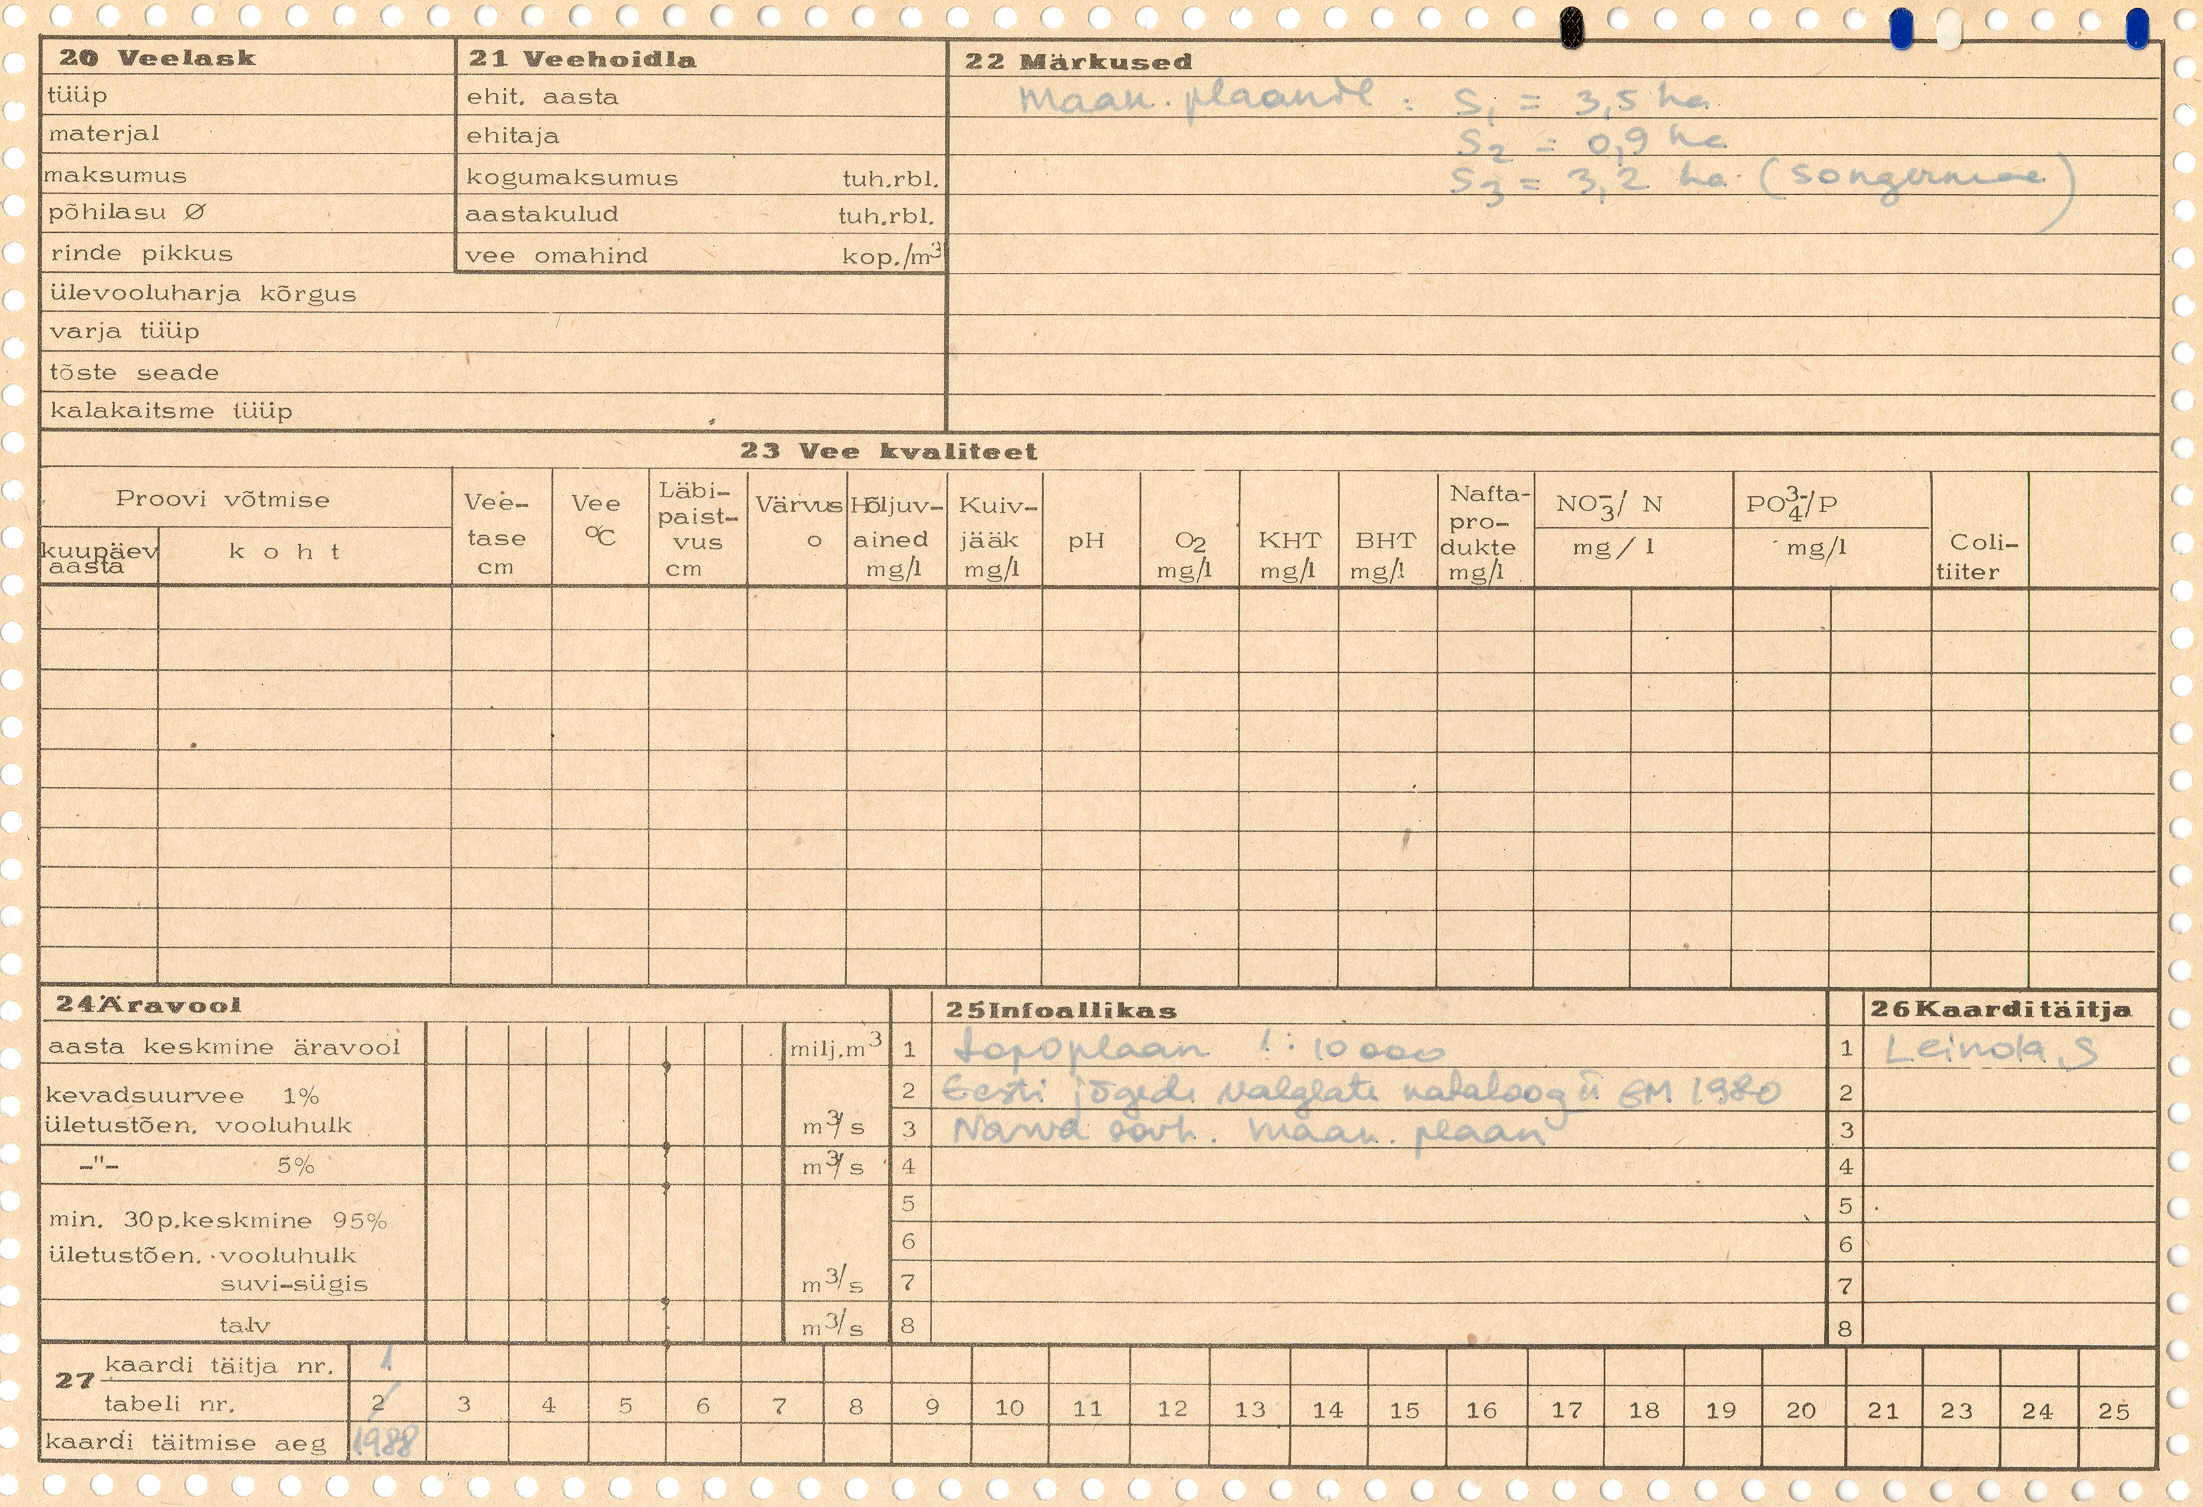 20 Veelask
tüüp
materjal
maksumus
põhilasu Ø
rinde pikkus
ülevooluharja kõrgus
varja tüüp
tõste seade
kalakaitsme tüüp
21 Veehoidla
ehit. aasta
ehitaja
kogumaksumus tuh.rbl.
aastakulud tuh.rbl.
vee omahind kop./m³
22 Märkused
Maan. plaanil : S₁ = 3,5 ha
S₂ = 0,9 ha
S₃ = 3,2 ha (songermaa)
23 Vee kvaliteet
Proovi võtmise
kuupäev aasta
koht
Vee-tase cm
Vee °C
Läbi-paist-vus cm
Värvus o
Hõljuv-ained mg/l
Kuiv-jääk mg/l
pH
O₂ mg/l
KHT mg/l
BHT mg/l
Nafta-pro-dukte mg/l
NO₃⁻/ N mg/l
PO₄³⁻/P mg/l
Coli-tiiter
24 Äravool
aasta keskmine äravool milj.m³
kevadsuurvee 1%
ületustõen. vooluhulk m³/s
-"- 5% m³/s
min. 30p.keskmine 95%
ületustõen. vooluhulk
suvi-sügis m³/s
talv m³/s
25 Infoallikas
1 topoplaan 1:10000
2 Eesti jõgede valglate kataloog II EM 1980
3 Narva sovh. maan. plaan
4
5
6
7
8
26 Kaarditäitja
1 Leinola, S
2
3
4
5
6
7
8
27 kaardi täitja nr. 1
tabeli nr. 2 3 4 5 6 7 8 9 10 11 12 13 14 15 16 17 18 19 20 21 23 24 25
kaardi täitmise aeg 1988